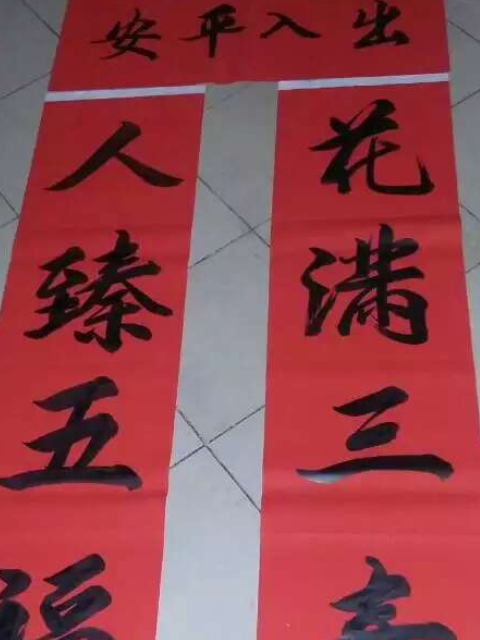 出入平安
花满三
人臻五福